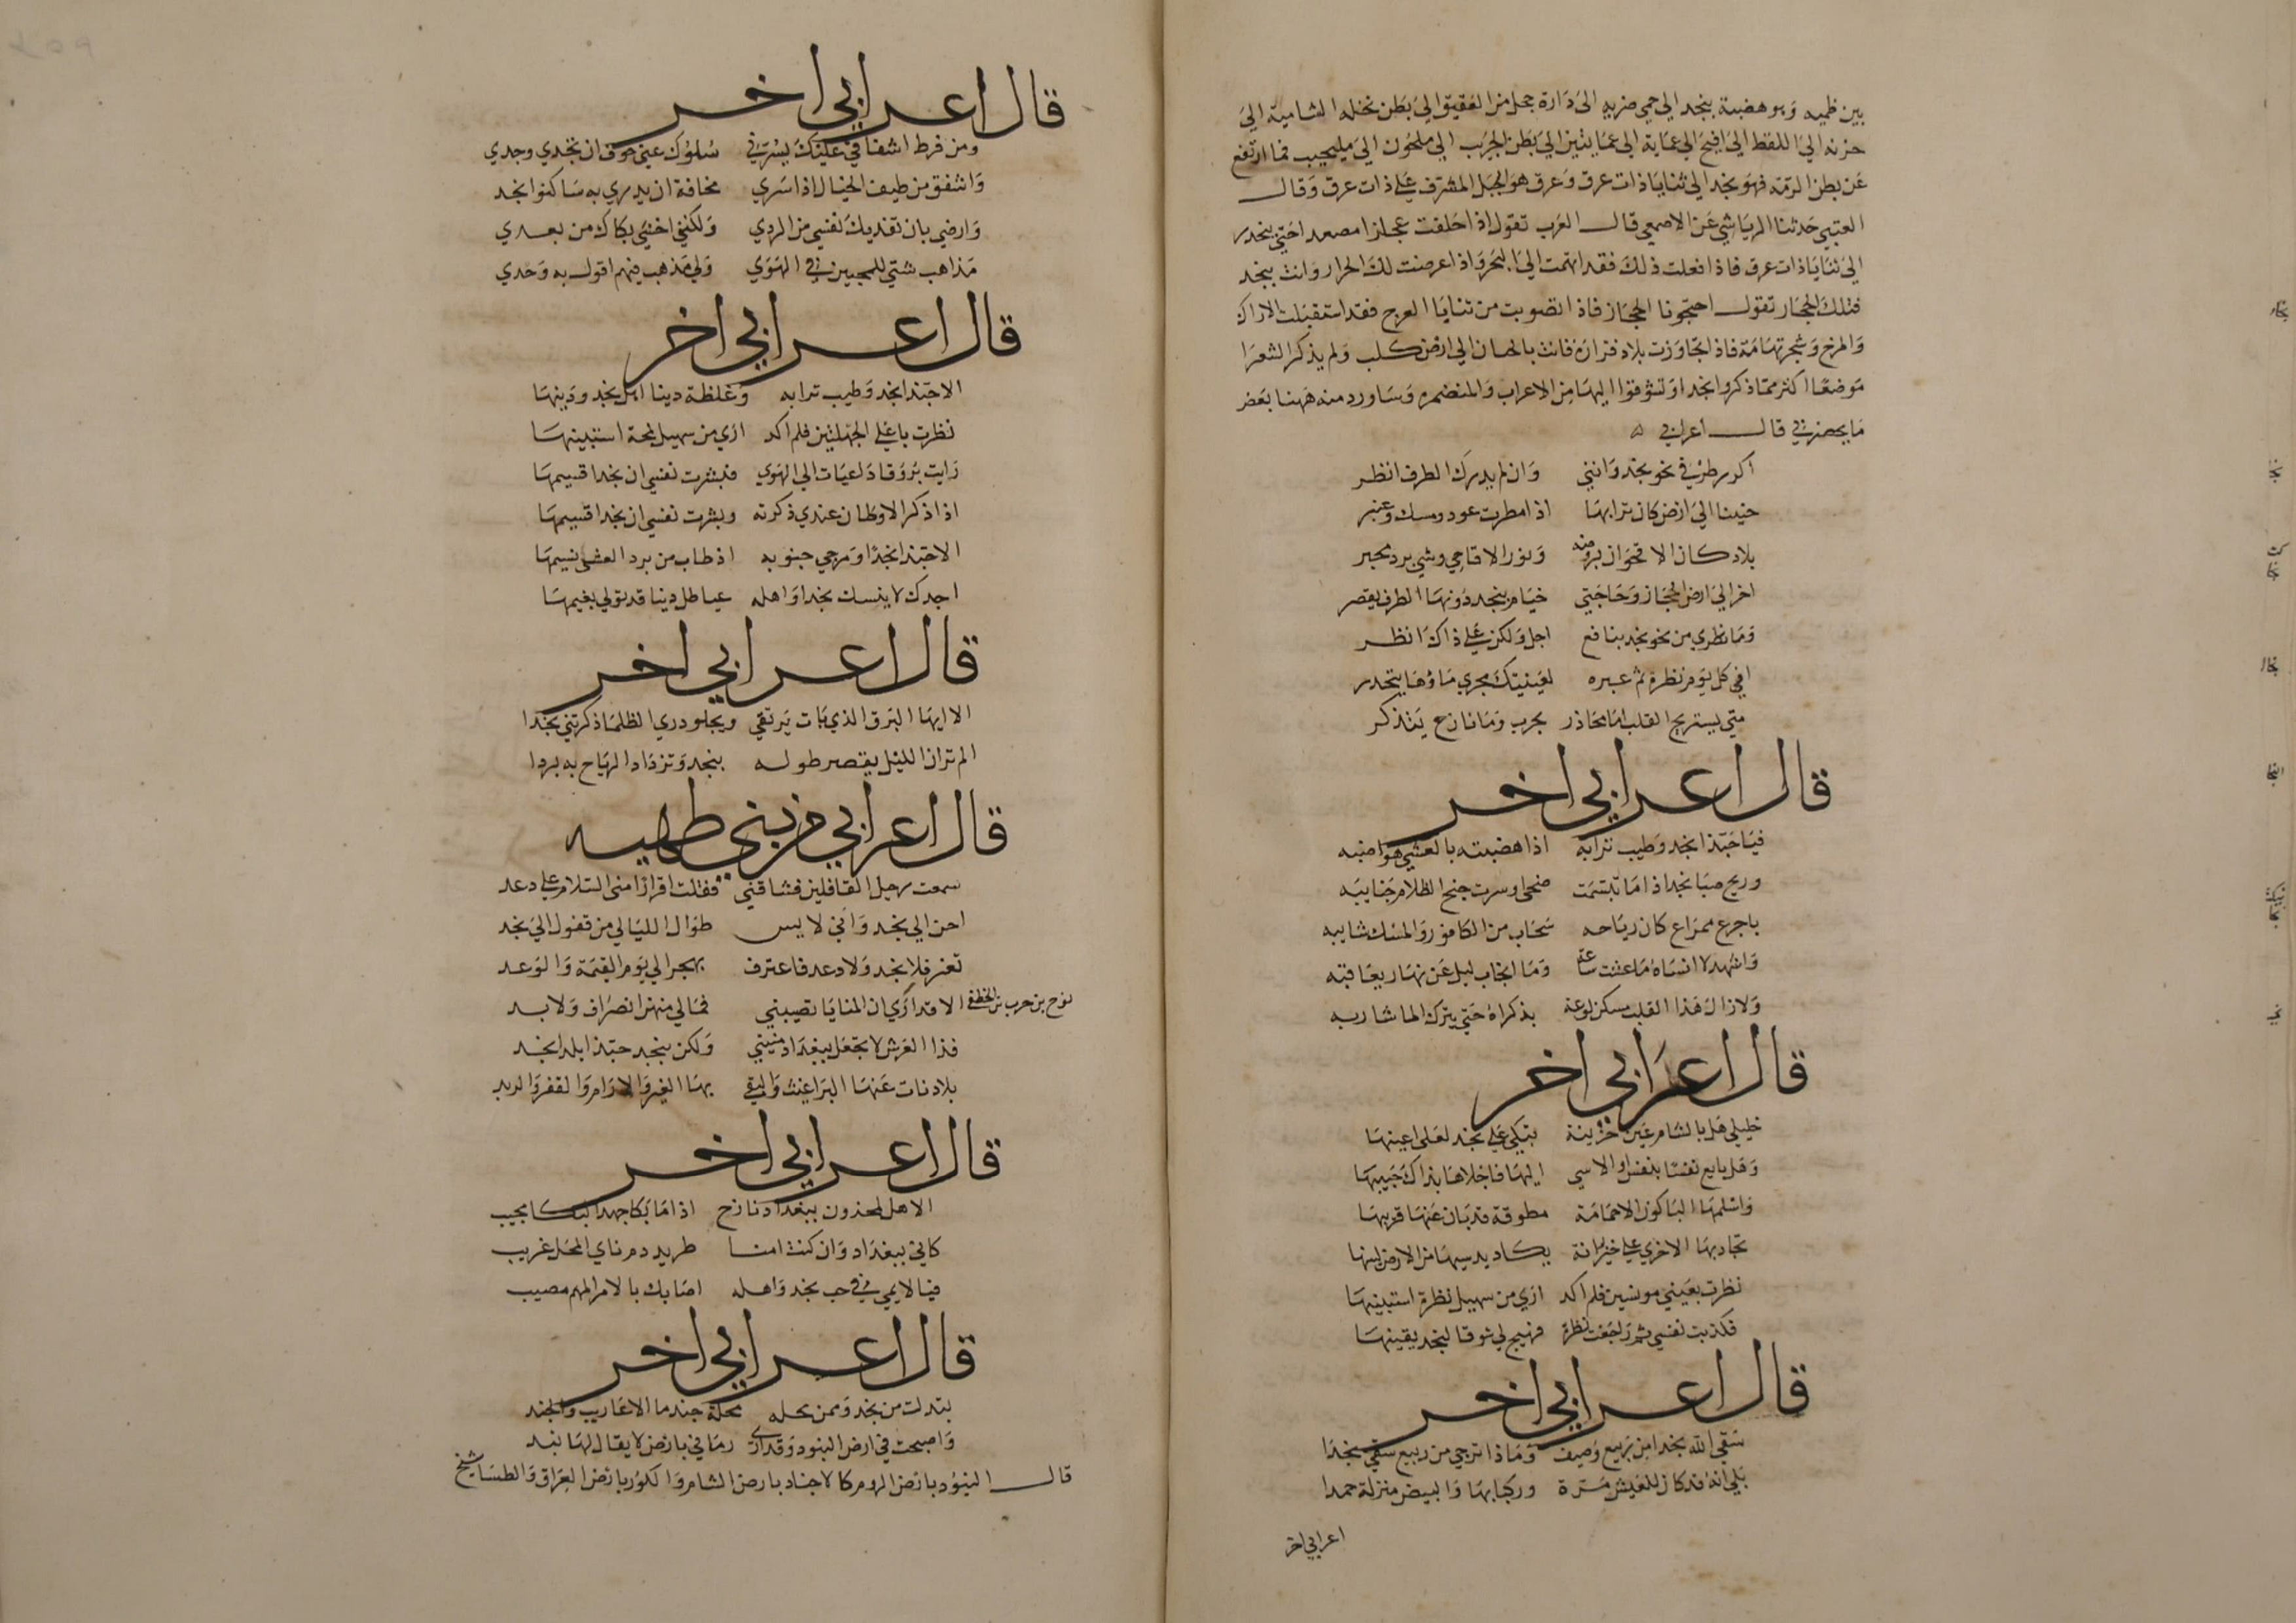 بين ظميه وبوهضبة بنجد الى حمى ضريه الى دارة جبل من العقيق الى بطن نخله الشامية الى
حزنه الى اللقط الى افيح الى عماية الى عمايتين الى بطن الجريب الى ملحون الى مليحيب فما ارتفع
عن بطن الرمة فهو نجد الى ثنايا ذات عرق وعرق هو الجبل المشرف على ذات عرق وقال
العتبي حدثنا الرياشي عن الاصمعي قال العرب تقول اذا خلفت عجلزا مصعدا حتى ينحدر
الى ثنايا ذات عرق فاذا فعلت ذلك فقد اتهمت الى البحر واذا عرضت لك الحرار وانت بنجد
فتلك الحجاز تقول احتجزنا الحجاز فاذا تصوبت من ثنايا العرج فقد استقبلت الاراك
والمرخ وشجر تهامة فاذا تجاوزت بلاد فزارة فانت بالجناب الى ارض كلب ولم يذكر الشعرا
موضعا اكثر مما ذكروا نجدا وتشوقوا اليها من الاعراب والمتحضره وساورد منه ههنا بعض
ما يحضرني قال اعرابي
اكرر طرفي نحو نجد وانني وان لم يدرك الطرف انظر
حنينا الى ارض كان ترابها اذا مطرت عود ومسك وعنبر
بلاد كان الاقحوان بروضه ونور الاقاحي وشي برد محبر
احن الى ارض الحجاز وحاجتي خيام بنجد دونها الطرف يقصر
وما نظري من نحو نجد بنافع اجل ولكن على ذاك انظر
افي كل يوم نظرة ثم عبره لعينيك مجرى ماؤها يتحدر
متى يستريح القلب اما مجاذر بحرب وما نازع يتذكر
قال اعرابي اخر
فيا حبذا نجد وطيب ترابه اذا هضبته بالعشي هواضبه
وريح صبا نجد اذا ما تبسمت ضحى او سرت جنح الظلام جنايبه
باجرع ممراع كان رياحه سحاب من الكافور والمسك شايبه
واشهد لا انساه ما عشت ساعة وما انجاب ليل عن نهار يعاقبه
ولا زال هذا القلب مسكن لوعة بذكراه حتى يترك الماء شاربه
قال اعرابي اخر
خليلي هل بالشام عين حزينة تبكي على نجد لعلى اعينها
وهل بايع نفسا بنفس او الاسى اليها فاجلاها بذاك حبيبها
واسلمها الباكون الا حمامة مطوقة قد بان عنها قرينها
تجاوبها الاخرى على خيزرانة يكاد يدنيها من الارض لينها
نظرت بعيني مونسين فلم اكد ارى من سهيل نظرة استبينها
فكذبت نفسي ثم راجعت نظرة فهيج لي شوقا لنجد يقينها
قال اعرابي اخر
سقى الله نجدا من ربيع وصيف وماذا ترجي من ربيع سقى نجدا
بلى انه قد كان للعيش مسرة وركبا بها والبيض منزلة حمدا
اعرابي اخر
قال اعرابي اخر
ومن فرط اشفاقي عليك يسرني سلوك عني خوف ان تجدي وجدي
واشفق من طيف الخيال اذا سرى مخافة ان يدري به ساكنوا نجد
وارضى بان تفديك نفسي من الردى ولكنني اخشى بكاك من بعدي
مذاهب شتى للمحبين في الهوى ولي مذهب فيهم اقول به وحدي
قال اعرابي اخر
الا حبذا نجد وطيب ترابه وغلظة دنيا اهل نجد ودينها
نظرت باعلى الجهلتين فلم اكد ارى من سهيل لمحة استبينها
رايت بروقا داعيات الى الهوى فبشرت نفسي ان نجدا قسيمها
اذا ذكر الاوطان عندي ذكرته وبشرت نفسي ان نجدا قسيمها
الا حبذا نجدا ومرجى جنوبه اذ طاب من برد العشى نسيمها
اجدك لا ينسك نجدا واهله عياطل دنيا قد تولى بغيمها
قال اعرابي اخر
الا ايها البرق الذي بات يرتقي ويجلو درى الظلما ذكرتني نجدا
الم تر ان الليل يقصر طوله بنجد وتزداد الرياح به بردا
قال اعرابي من بني طهيه
سمعت رحيل القافلين فشاقني فقلت اقرازا مني السلام على دعد
احن الى نجد واني لايس طوال الليالي من قفول الى نجد
تعز فلا نجد ولا دعد فاعترف بهجر الى يوم القيمة والوعد
نوح بن حرب بن الخطفى الا قد ارى ان المنايا تصيبني فمالي منهن انصراف ولا بد
فذا العرش لا تجعل ببغداد منيتي ولكن بنجد حبذا بلدا نجد
بلاد نات عنها البراغيث والبقي بها العير والارام والقفر والربد
قال اعرابي اخر
الا هل لمحزون ببغداد نازح اذا ما بكا جهد البكا مجيب
كاني ببغداد وان كنت امنا طريد دم ناي المحل غريب
فيا لايمي في حب نجد واهله اصابك بالامر المهم مصيب
قال اعرابي اخر
تبدلت من نجد وممن يحله محلة جند ما الاعاريب والجند
واصبحت في ارض البنود وقد ارى زماني بارض لا يقال لها بند
قال البنود بارض الروم كالاجناد بارض الشام والكور بارض العراق والطساسيج